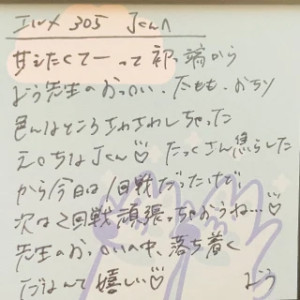 エルメ 305 Jくんへ
甘えたくてーって初っ端から
よう先生のおっぱい、たもも、おちり
色んなところさわさわしちゃった
えっちなJくん♡ たっくさん焦らした
から今日は1回戦だったけど、
次は2回戦頑張っちゃおうね…♡
先生のおっぱいの中、落ち着く
だなんて嬉しい♡ よう